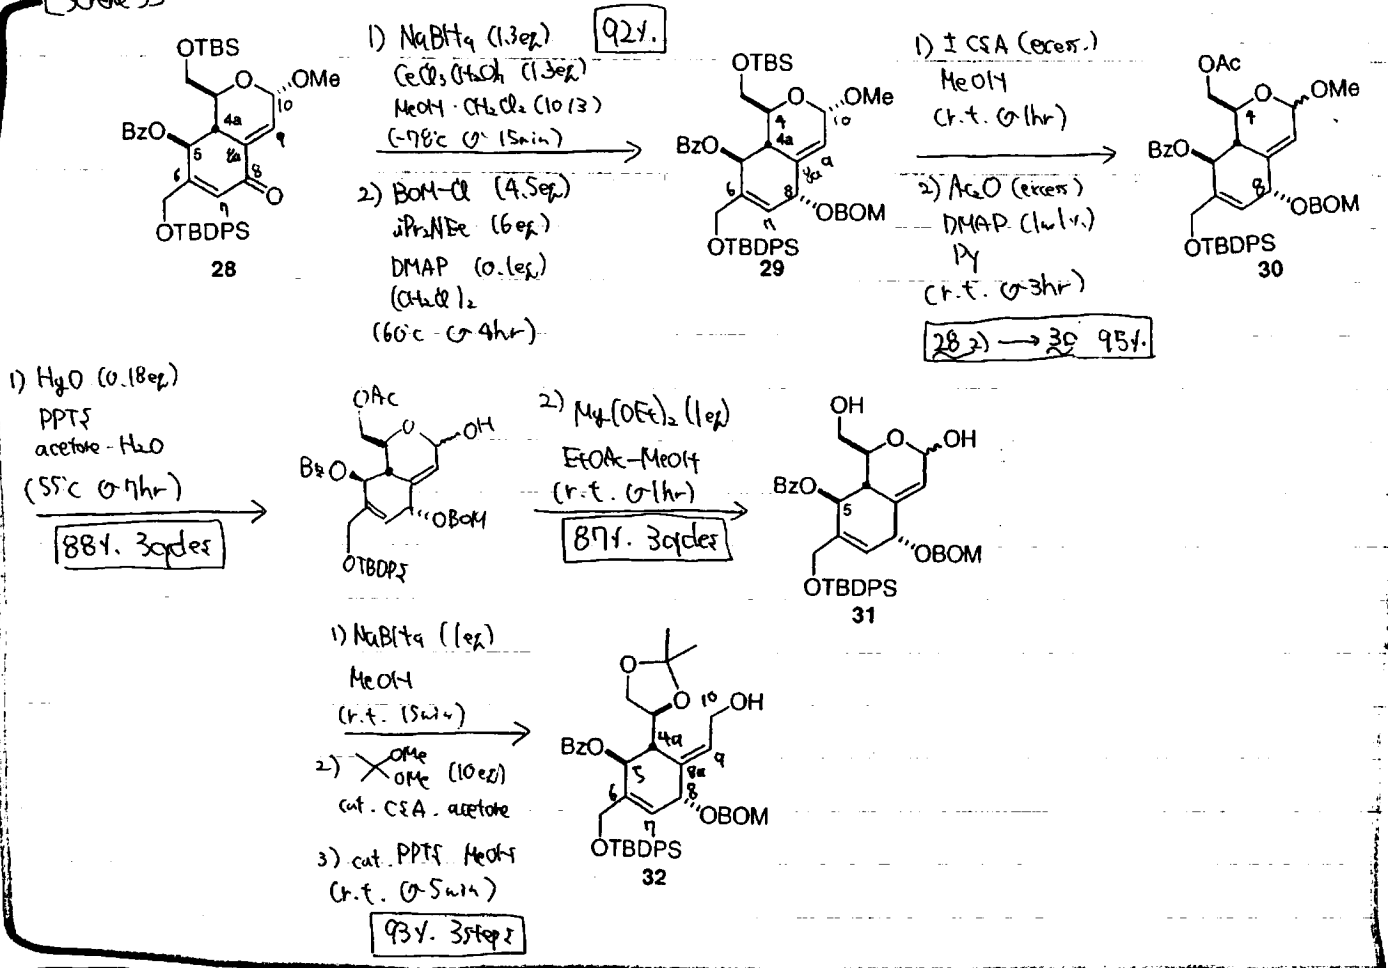 OTBS
O
OMe
10
4a
BzO
5
9
8a
8
6
O
7
OTBDPS
28
1) NaBH4 (1.3eq)
92%.
(1.3eq)
MeOH・CH2Cl2 (10/3)
(-78℃ 15min)
2) BOM-Cl (4.5eq)
iPr2NEt (6eq)
DMAP (0.1eq)
(CH2Cl)2
(60℃ 4hr)
OTBS
O
OMe
4
10
4a
BzO
9
8a
6
8
7
OBOM
OTBDPS
29
1) ± CSA (excess.)
MeOH
(r.t. 1hr)
2) Ac2O (excess)
DMAP
Py
(r.t. 3hr)
28 2) → 30 95%.
OAc
O
OMe
4
BzO
8
OBOM
OTBDPS
30
1) HgO (0.18eq)
PPTS
acetone-H2O
(55℃ 7hr)
88%. 3cycles
OAc
O
OH
BzO
OBOM
OTBDPS
2) Mg(OEt)2 (1eq)
EtOAc-MeOH
(r.t. 1hr)
87%. 3cycles
OH
O
OH
BzO
5
OBOM
OTBDPS
31
1) NaBH4 (1eq)
MeOH
(r.t. 15min)
2) OMe
OMe (10eq)
cat. CSA. acetone
3) cat. PPTS MeOH
(r.t. 5min)
93%. 3steps
O
O
10
OH
4a
BzO
9
5
8a
6
8
7
OBOM
OTBDPS
32